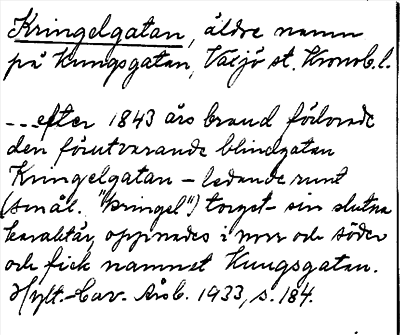 Kringelgatan, äldre namn
på Kungsgatan, Växjö st. Kronob. l.
...efter 1843 års brand förlorade
den förutvarande blindgatan
Kringelgatan – ledande runt
(smål. "kringel") torget – sin slutna
karaktär, öppnades i norr och söder
och fick namnet Kungsgatan.
Hylt.-Cav. Årsb. 1933, s. 184.